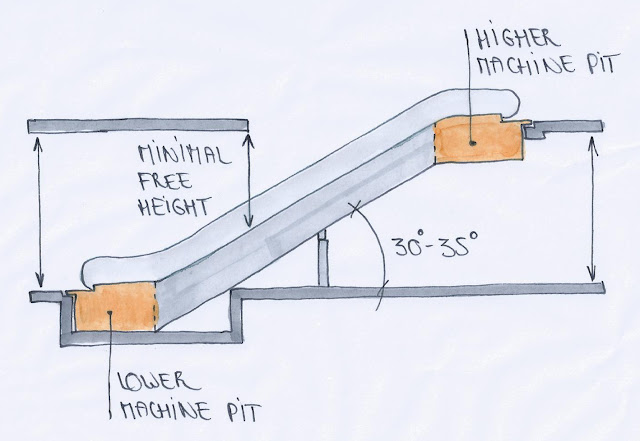 HIGHER
MACHINE PIT
MINIMAL
FREE
HEIGHT
30°-35°
LOWER
MACHINE PIT